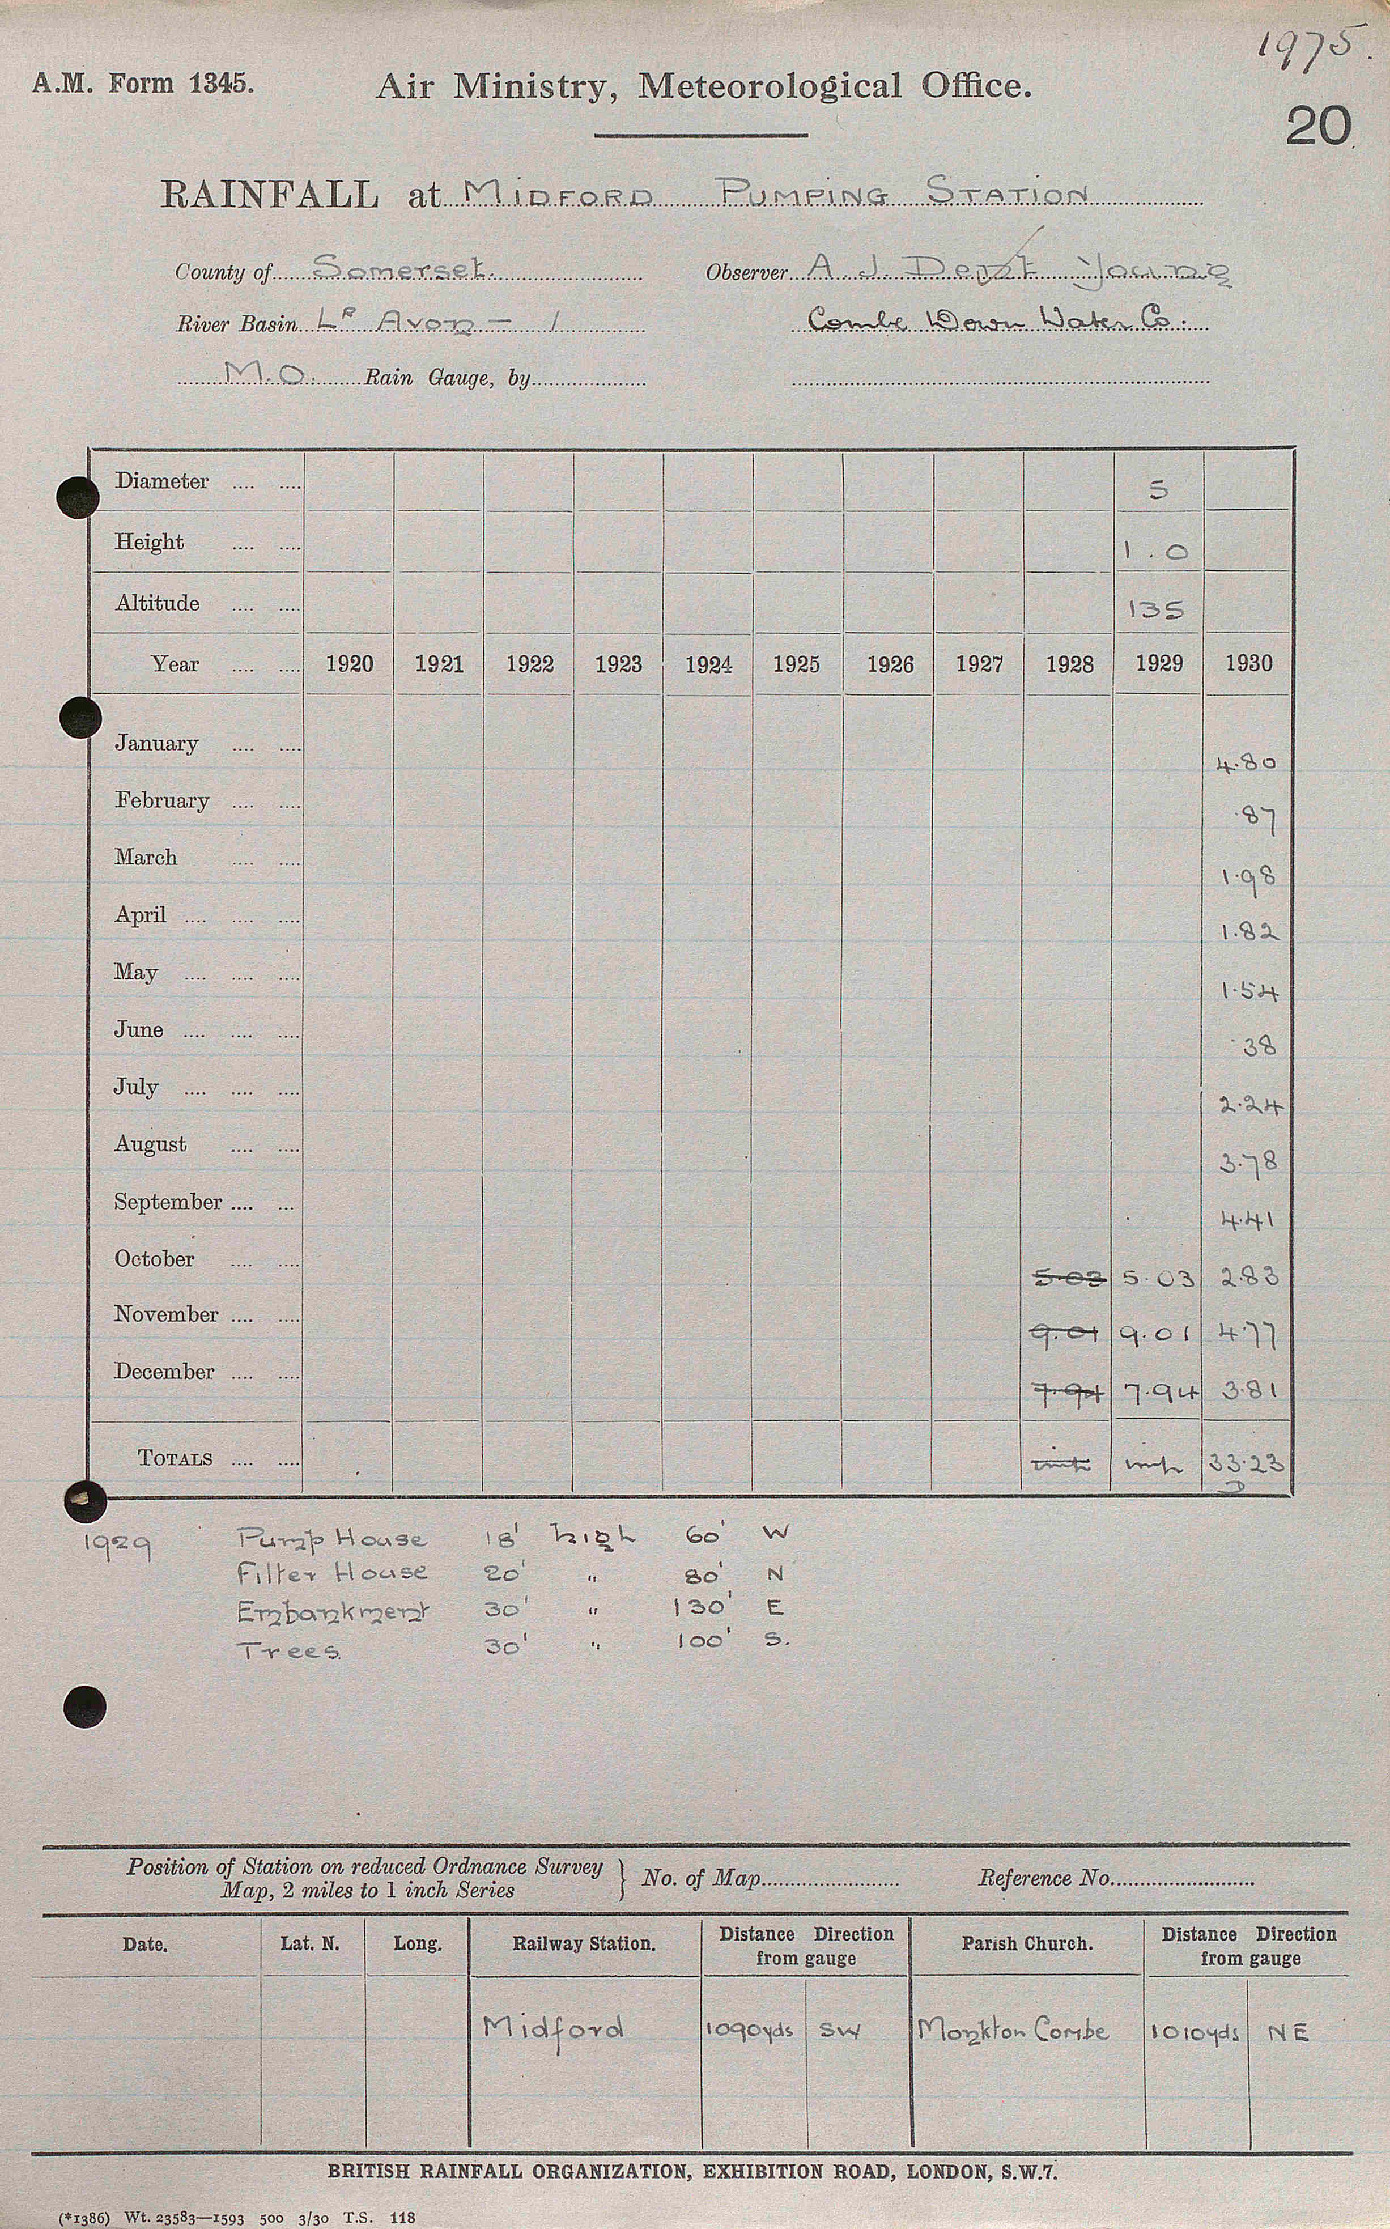 1975.
A.M. Form 1345. Air Ministry, Meteorological Office.
20
RAINFALL at MIDFORD PUMPING STATION
County of Somerset. Observer A J Dent Young
River Basin Lr Avon – 1 Combe Down Water Co.
M.O. Rain Gauge, by
Diameter .... .... 5
Height .... .... 1.0
Altitude .... .... 135
Year .... .... 1920 1921 1922 1923 1924 1925 1926 1927 1928 1929 1930
January .... .... 4.80
February .... .... .87
March .... .... 1.98
April .... .... .... 1.82
May .... .... .... 1.54
June .... .... .... .38
July .... .... .... 2.24
August .... .... 3.78
September .... ... 4.41
October .... .... 5.03 5.03 2.83
November .... .... 9.01 9.01 4.77
December .... .... 7.94 7.94 3.81
TOTALS .... .... imp imp 33.23
D
1929 Pump House 18' high 60' W
Filter House 20' " 80' N
Embankment 30' " 130' E
Trees. 30' " 100' S.
Position of Station on reduced Ordnance Survey Map, 2 miles to 1 inch Series } No. of Map Reference No.
Date. Lat. N. Long. Railway Station. Distance Direction from gauge Parish Church. Distance Direction from gauge
Midford 1090yds SW Monkton Combe 1010yds NE
BRITISH RAINFALL ORGANIZATION, EXHIBITION ROAD, LONDON, S.W.7.
(*1386) Wt. 23583—1593 500 3/30 T.S. 118